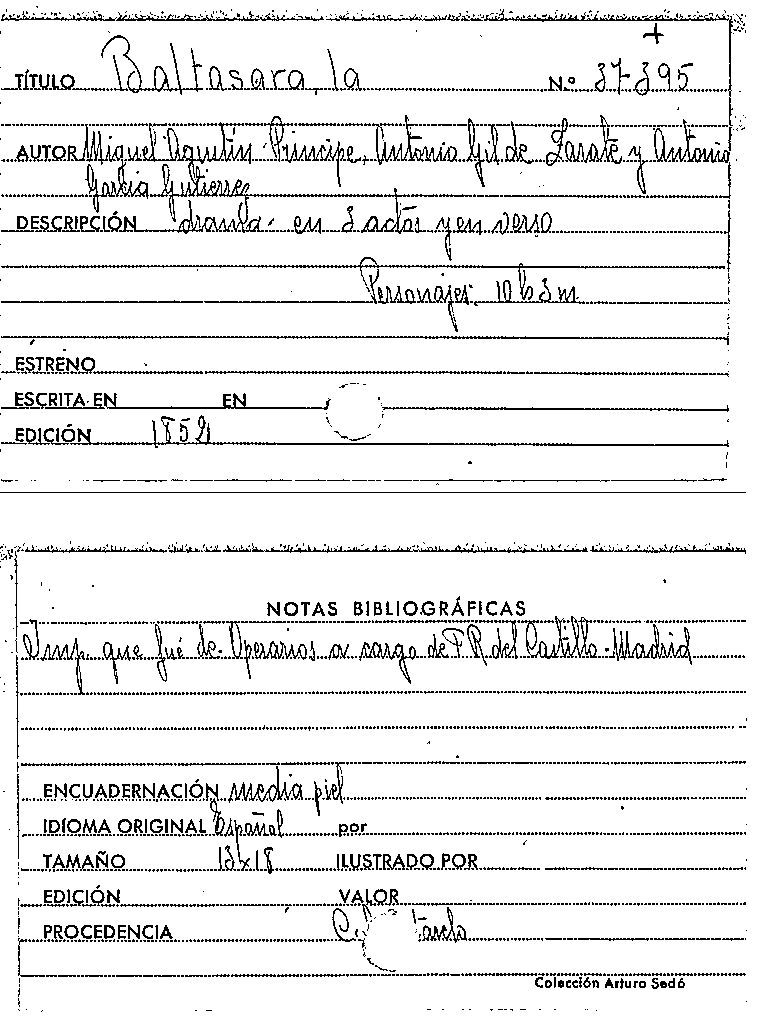 +
TÍTULO Baltasara, la N.º 37395
AUTOR Miguel Agustín Principe, Antonio Gil de Zarate y Antonio
Garcia Gutierrez
DESCRIPCIÓN drama en 3 actos y en verso
Personajes: 10 h 3 m
ESTRENO
ESCRITA EN EN
EDICIÓN
NOTAS BIBLIOGRÁFICAS
Imp. que fué de Operarios a cargo de F R del Castillo - Madrid
ENCUADERNACIÓN media piel
IDIOMA ORIGINAL Español por
TAMAÑO 13x18 ILUSTRADO POR
EDICIÓN VALOR
PROCEDENCIA
Colección Arturo Sedó